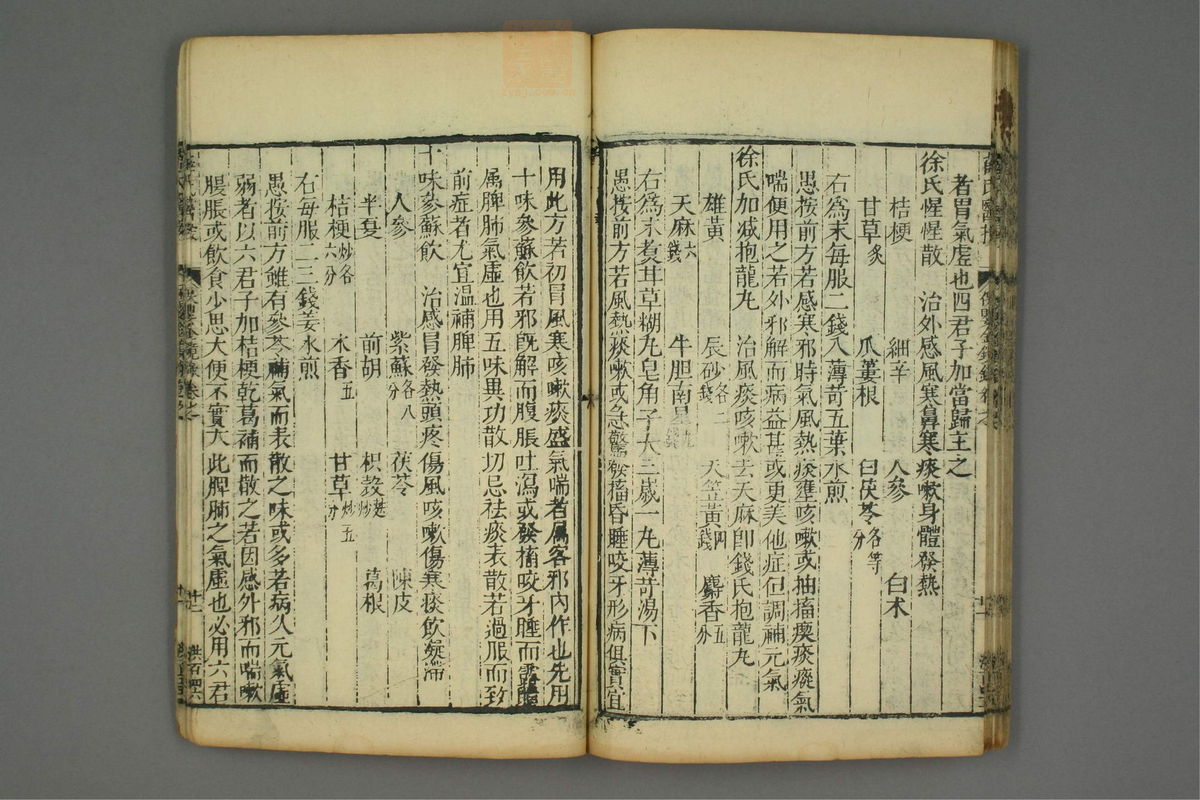 者胃氣虛也四君子加當歸主之
徐氏惺惺散　治外感風寒鼻寒痰嗽身體發熱
桔梗　細辛　人參　白术
甘草炙　瓜蔞根　白茯苓各等分
右為末每服二錢入薄荷五葉水煎
愚按前方若感寒邪時氣風熱痰壅咳嗽或抽搐瘈瘲痰氣
喘便用之若外邪解而病益甚或更美他症但調補元氣
徐氏加减抱龍丸　治風痰咳嗽去天麻即錢氏抱龍丸
雄黃　辰砂各二錢　天竺黃四錢　麝香五分
天麻六錢　牛胆南星
右為末煑甘草糊丸皂角子大三歲一丸薄荷湯下
愚按前方若風熱痰嗽或急驚發搐昏睡咬牙形病俱實宜
用此方若初冒風寒咳嗽痰盛氣喘者屬客邪內作也先用
十味參蘇飲若邪既解而腹脹吐瀉或發搐咬牙睡而露睛
属脾肺氣虛也用五味異功散切忌祛痰表散若過服而致
前症者尤宜温補脾肺
十味參蘇飲　治感冒發熱頭疼傷風咳嗽傷寒痰飲凝滯
人參　紫蘇各八分　茯苓　陳皮
半夏　前胡　枳殼麩炒　葛根
桔梗炒各六分　木香五分　甘草炒五分
右每服二三錢姜水煎
愚按前方雖有參苓補氣而表散之味或多若病久元氣虛
弱者以六君子加桔梗乾葛補而散之若因感外邪而喘嗽
腸脹或飲食少思大便不實大此脾肺之氣虛也必用六君